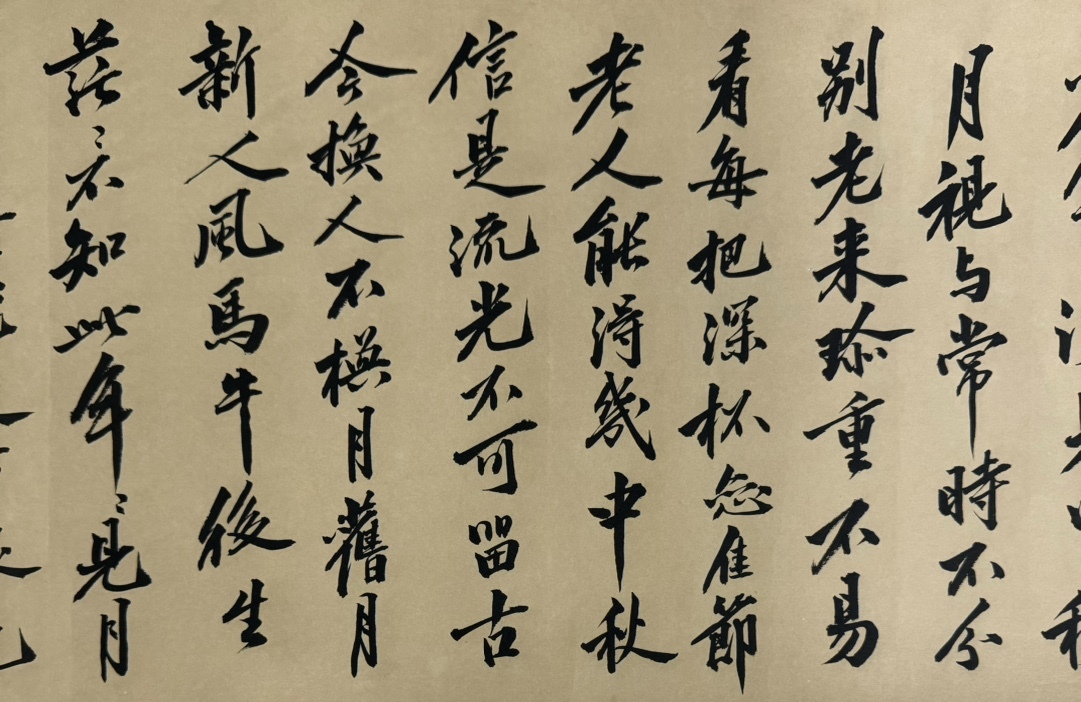 月視与常時不分
別老来珎重不易
看每把深杯佳節
老人能得幾中秋
信是流光不可畱古
今換人不換月舊月
新人風馬牛後生
茫々不知此年々見月